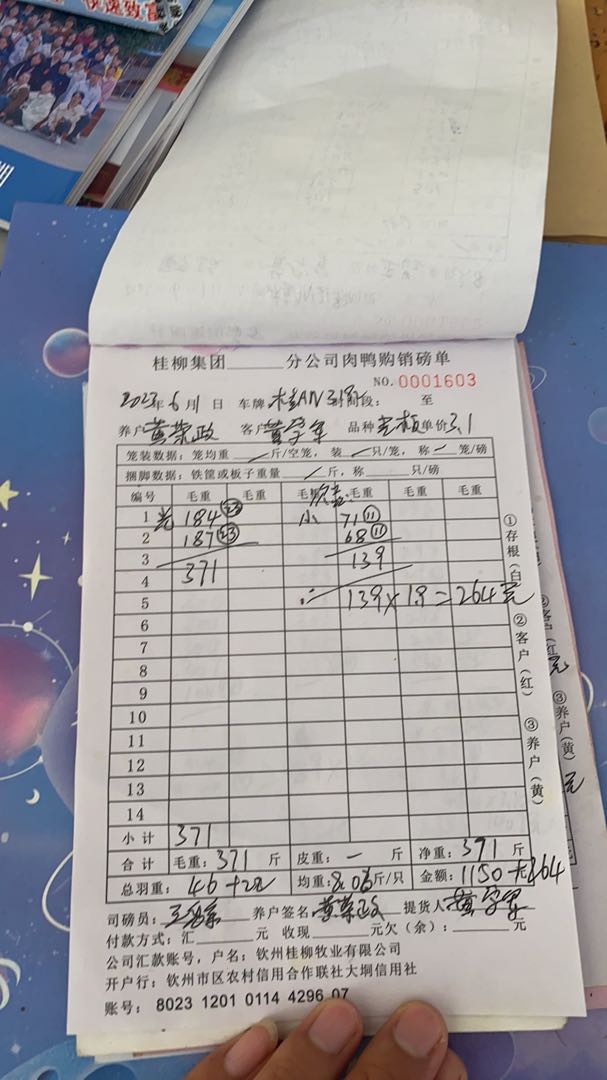 快速致富
桂柳集团______分公司肉鸭购销磅单
NO.0001603
2023年6月1日 车牌 桂AN 时间段: 至
养户 黄荣政 客户 黄学军 品种 单价3.1
笼装数据: 笼均重 斤/空笼, 装 只/笼, 称 笼/磅
捆脚数据: 铁筐或板子重量 斤, 称 只/磅
编号 毛重 毛重 毛重 毛重 毛重 毛重
1 184 23 小 71 11
2 187 23 68 11
3 139
4 371
5 139×1.9=264元
6
7
8
9
10
11
12
13
14
小计 371
合计 毛重: 371 斤 皮重: — 斤 净重: 371 斤
总羽重: 46+22 均重: 8.06斤/只 金额: 1150+264
司磅员: 养户签名: 黄荣政 提货人: 黄学军
付款方式: 汇______元 收现______元欠(余): ______元
公司汇款账号, 户名: 钦州桂柳牧业有限公司
开户行: 钦州市区农村信用合作联社大垌信用社
账号: 8023 1201 0114 4296 07
①存根(白)
②客户(红)
③养户(黄)